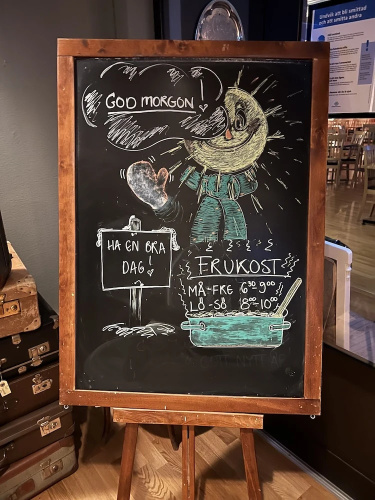 Undvik att bli smittad
och att smitta andra
GOD MORGON!
HA EN BRA
DAG!
FRUKOST
MÅ-FRE 6:30-9:00
LÖ-SÖ 8:00-10:00